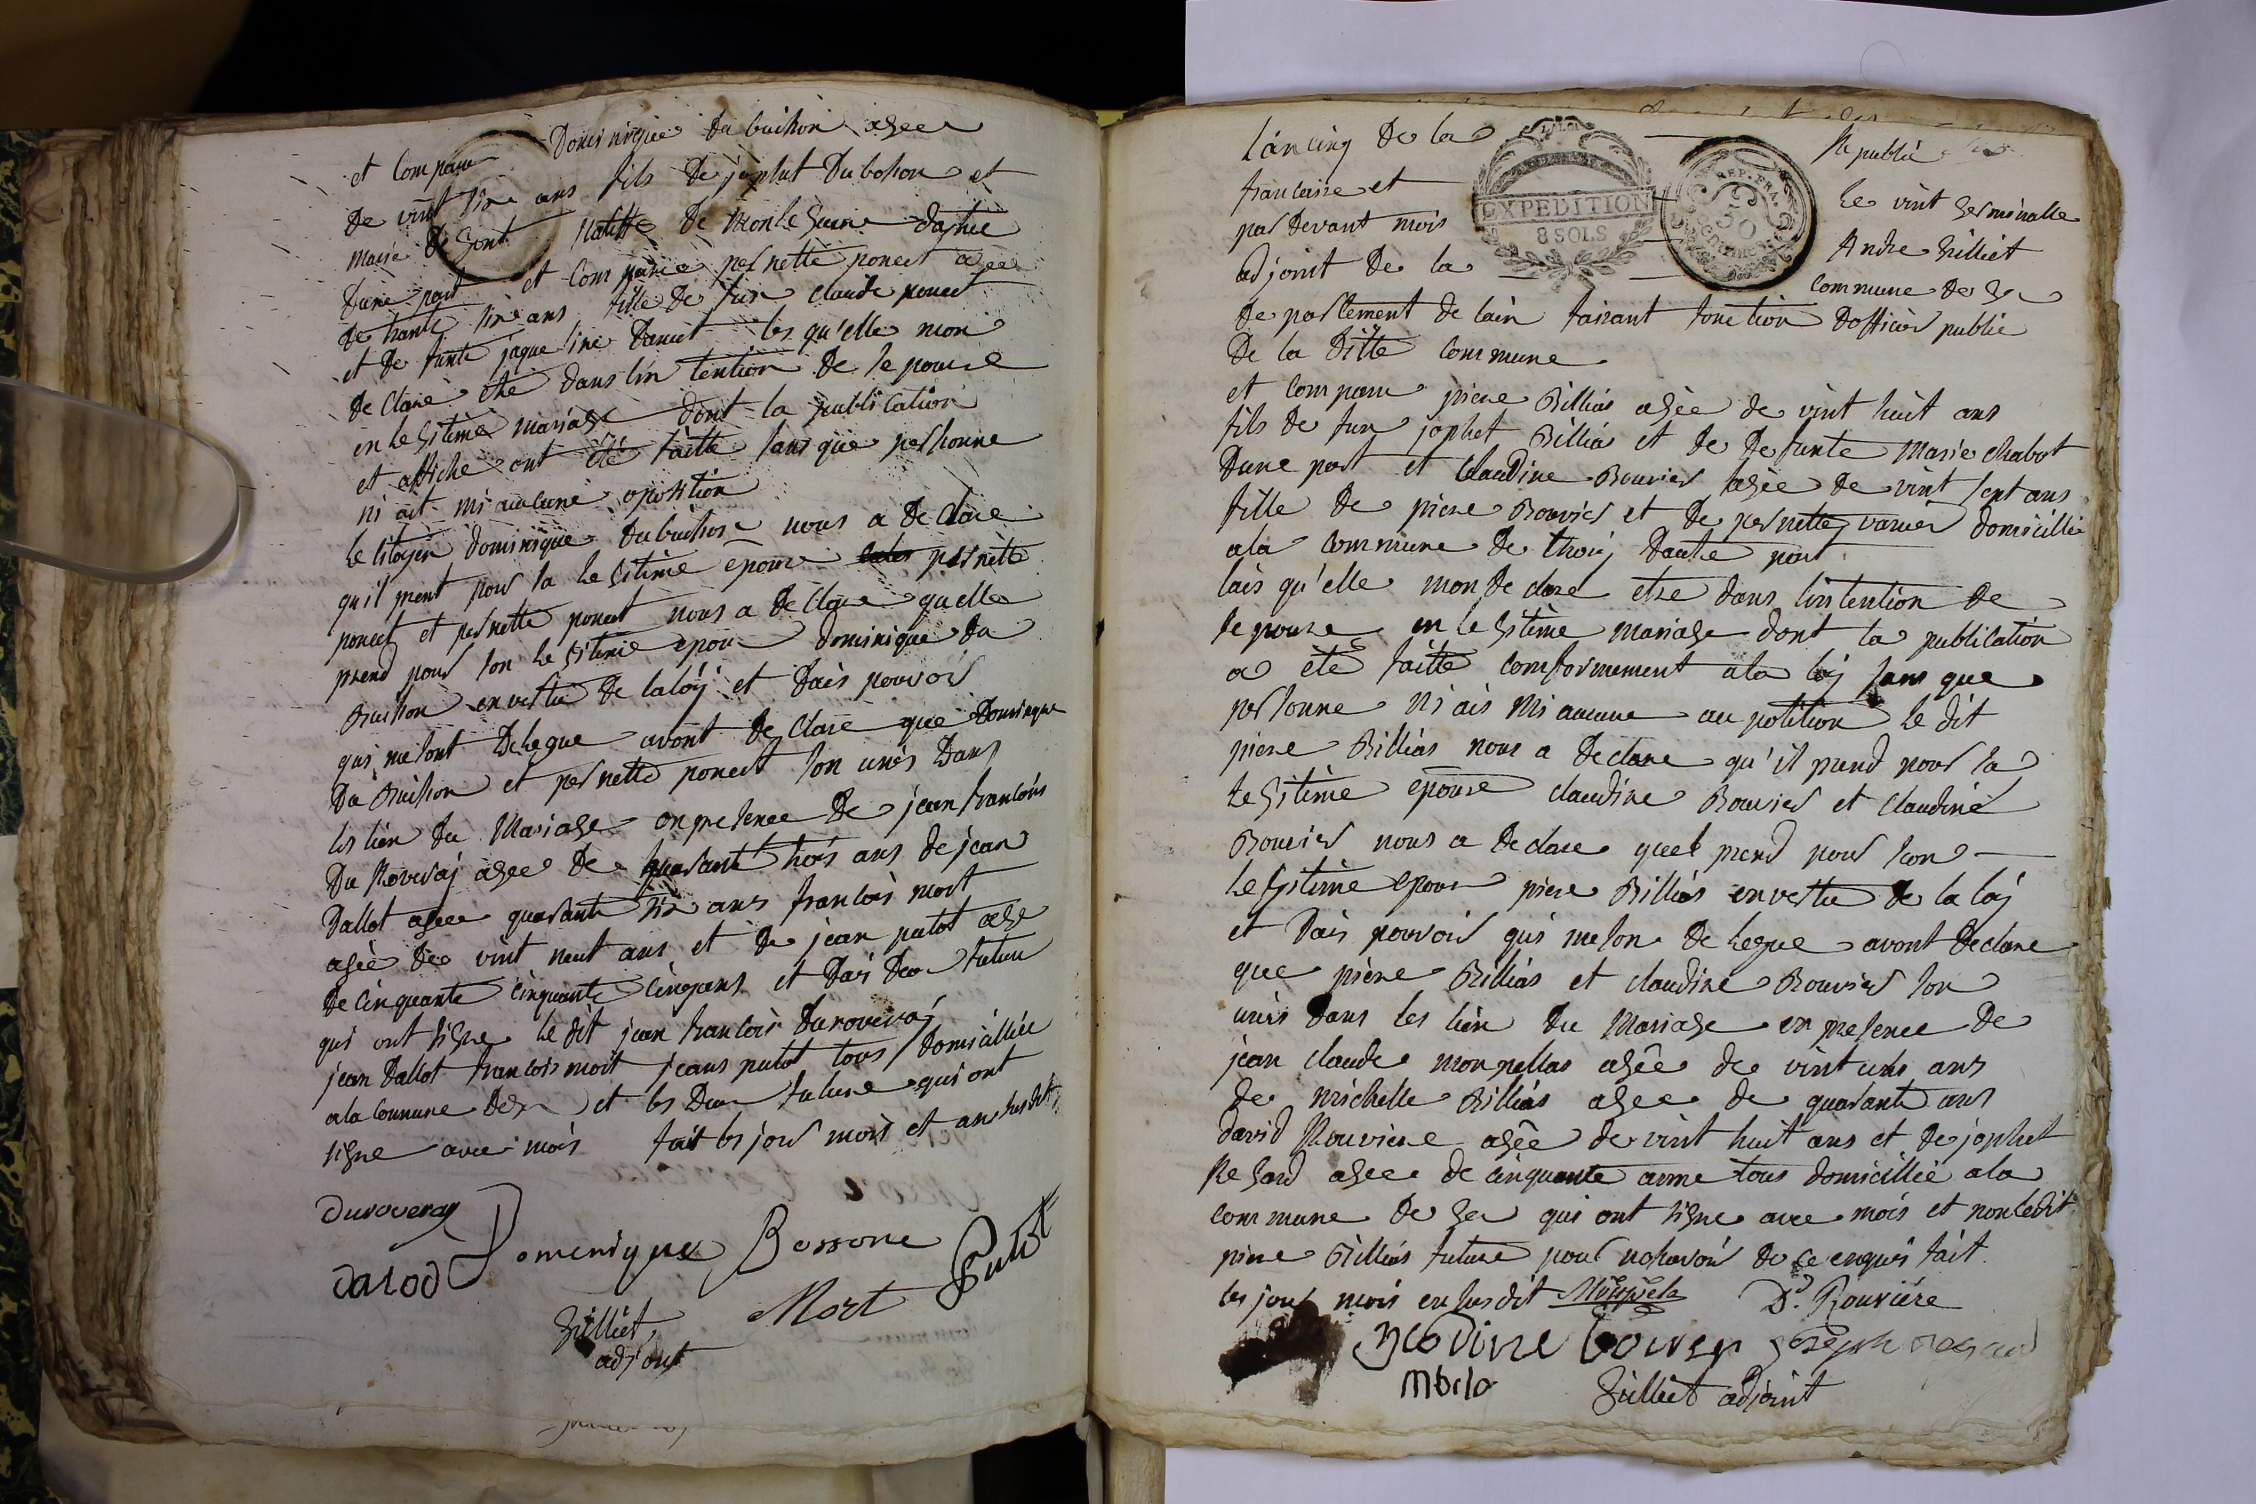 et Comparu Dominique Du buisson agee
De vint six ans fils De josphet Dubosson et
Marie De Gont Natiffe De
Dune part et Comparue pernette ponect agee
De trante six ans fille De fun Claude ponect
et De funte jaque line Danut les qu'elle mon
De Clare etre dans lin tention De se pouse
en le Gitime mariage dont la publication
et affiche ont été faitte sans que personne
ni ait mi aucune oposition
le Citoyen dominique Dubuisson nous a De Clare
qu'il prent pour sa le Gitime epouse pernette
ponect et pernette ponect nous a De Clare quelle
prend pour son le Gitime epou dominique du
Buisson en vertu De laloÿ et Dais pouvoir
qui me sont Delegue avont De Clare que Dominque
Du Buisson et pernette ponect son unis Dans
les lien du Mariage en presence De jean francois
Du Roveraÿ agee De quarante trois ans de jean
Dallot agee quarante six ans francois mort
agèe Dee vint neut ans et De jean putot age
De Cinquante cinquante Cinq ans et Dais Deu futeu
qui ont signe le dit jean francois Duroveraÿ
jean Dallot francois mort jeans putot tous Domicillie
ala Commune De et les Deu future qui ont
signe avec mois fait les jour mois et an susdit
duroveray
Domenique Bossone
Dalod
Mort
Putot
Gilliet
adjont
Lan cinq De la Republi
francaise et le vint Germinalle
par Devant mois Andre Gilliet
adjoint De la Commune De
EXPEDITION
8 SOLS
REP. FRA.
50
De partement de lain faisant fonction Dofficier public
De la Ditte Commune
et Comparu piere Billias agèe de vint huit ans
fils De fun josphet Billia et De Defunte Marie Chabot
Dune part et Claudine Bouvier agèe De vint sept ans
fille De piere Bouvier et De pernette varner domicillie
ala Commune De thoiÿ Dautre part
lais qu'elle mon de clare etre dans lintention De
se pouse en le Gitime Mariage dont la publication
a été faitte comformement ala loÿ sans que
personne Ni ais Mi aucune au position le Dit
piere Billias nous a Declare qu'il prend pour sa
le Gitime epouse claudine Bouvier et claudine
Bouvier nous a Declare quel prend pour son
le Gitime epour piere Billias en vertu De la loÿ
et Dais pouvoir qui me son De legue avont Declare
que piere Billias et claudine Bouvier son
unis Dans les lien Du Mariage en presence De
jean claude monpellas agêe de vint uns ans
de michelle Billias agee De quarante ans
David Rouviere agêe De vint huit ans et De josphet
Regard agee De cinquante anne tous domicillié ala
commune De Gex qui ont signe avec mois et non ledit
piere Billias future pour nesavoir De ce enquis fait
les jour mois en susdit Dd. Rouviére
bouver joseph regard
Gilliet adjoint